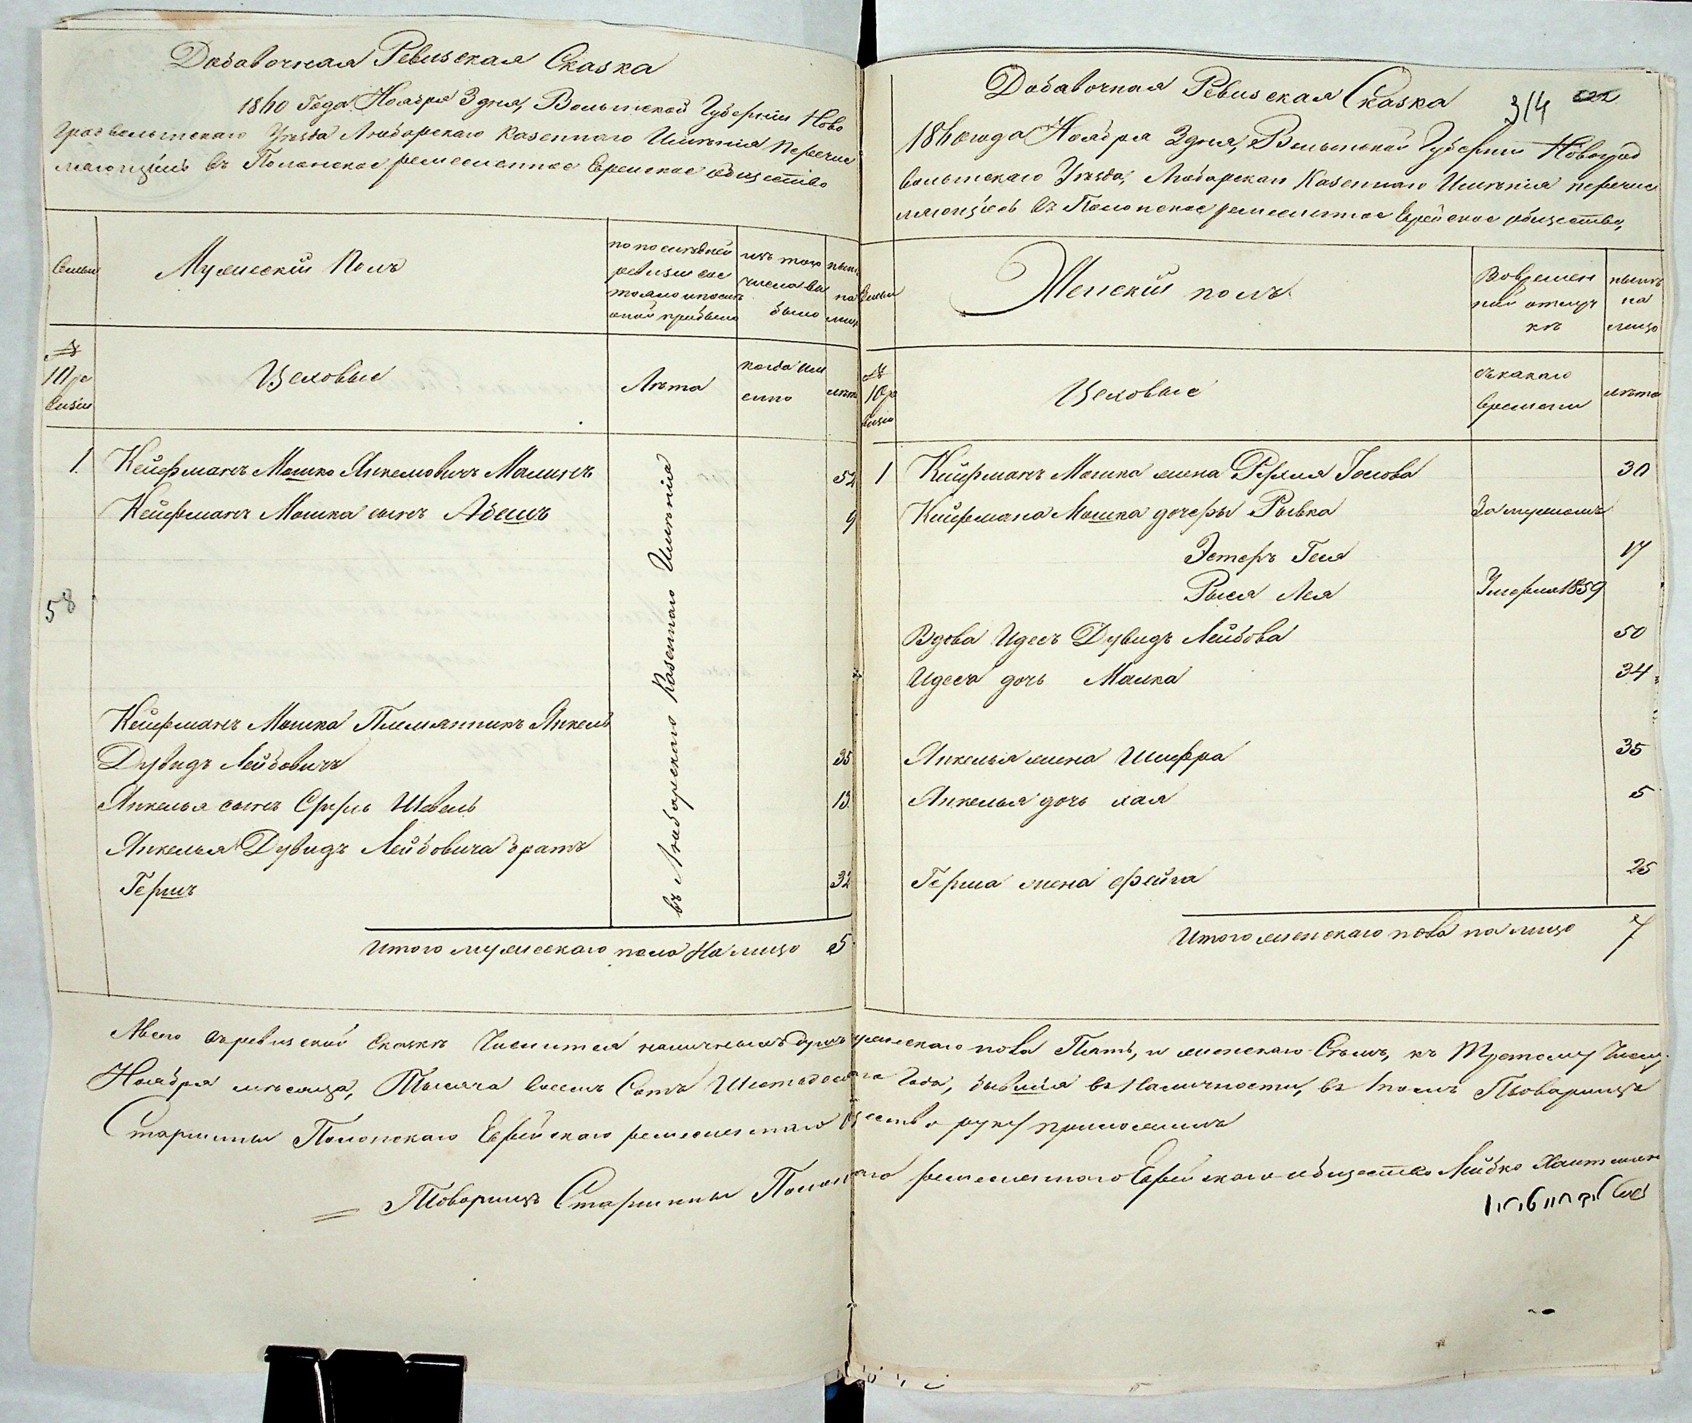 Добавочная Ревизская Сказка
1860 Года Ноября 3 дня, Волынской Губернии Ново
градволынскаго Уѣзда Любарскаго Казеннаго Имѣнія перечис
ляющимъ въ Полонское ремесленное Еврейское общество
Семьи
Мужескій Полъ
по послѣдней
ревизіи сос
тояло и послѣ
оной прибыло
изъ того
числа вы
было
нынѣ
на
лицо
№
10 ре
визіи
Цеховые
Лѣта
когда им
енно
лѣта
1. Кейфманъ Мошко Янкелевичъ Малинъ 52
Кейфманъ Мошка сынъ Абешъ 9
58
Кейфманъ Мошка Племянникъ Янкель
Дувидъ Лейбовичъ 35
Янкеля сынъ Сруль Шевель 13
Янкеля Дувидъ Лейбовича братъ
Гершъ 32
въ Любарскаго Казеннаго Имѣнія
Итого мужескаго пола На лицо 5
Добавочная Ревизская Сказка
314
1860 года Ноября 3 дня, Волынской Губерніи Новоград
волынскаго Уѣзда, Любарскаго Казеннаго Имѣнія перечис
ляющихъ въ Полонское ремесленное Еврейское общество,
Семьи
Женскій полъ
Вовремен
ной отлуч
кѣ
нынѣ
на
лицо
№
10 ре
визіи
Цеховые
съ какаго
времени
лѣта
1 Кейфманъ Мошка жена Рейзля Іосова 30
Кейфмана Мошка дочеры Рывка Замужемъ
Эстеръ Геня 17
Рыся Лея Умерла 1859
Вдова Идесъ Дувидъ Лейбова 50
Идеса дочь Малка 34
Янкеля жена Шифра 35
Янкеля дочь хая 5
Герша жена Фейга 25
Итого женскаго пола на лицо 7
А всего въ ревизской Сказкѣ Числится наличныхъ душъ мужескаго пола Пять, и женскаго Семь, къ Третему Числу
Ноября мѣсяца, Тысяча восемь Сотъ Шестидесятаго Года, бывшія въ Наличности, въ томъ Товарищъ
Старшины Полонскаго Еврейскаго ремесленнаго Общества руку приложилъ
Товарищъ Старшины Полонскаго ремесленнаго Еврейскаго общество Лейбко